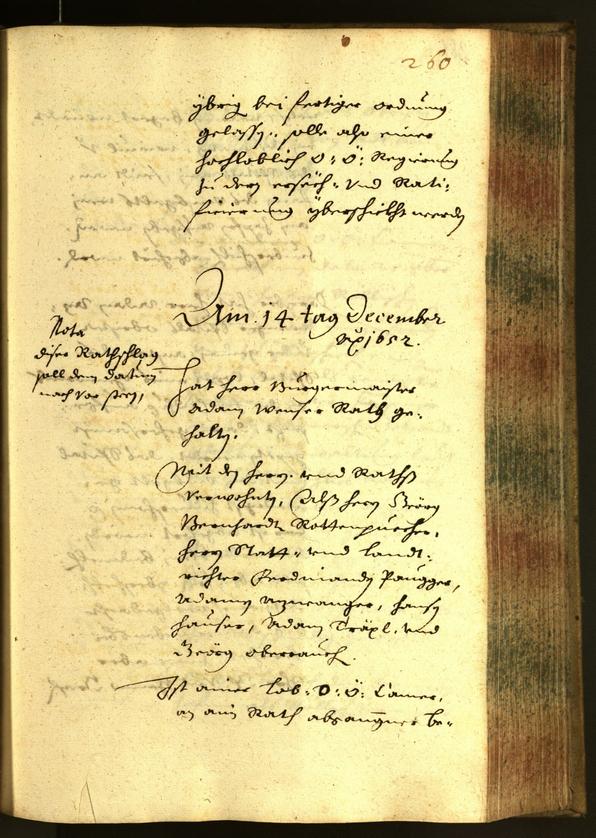 260
ÿbrig bei fertiger ordnung
gelassen, solle also einer
hochloblich O: Ö: Regierung
zu dern ersech: Vnd Rati:
ficierung ÿberschickht werden
Am 14 tag December
1652.
Nota
diser Rathschlag
soll dem datum
nach vor steen,
Hat herr Burgermaister
Adam Wenser Rath ge:
halten.
Mit den herrn. vnd Raths
verwohnten, Alß herrn Geörg
Bernhardt Rottenpuecher,
herrn Statt- vnd Landt:
richter Ferdinandn Paugger,
Adamn, hansn
hauser, Adam Träxl, vnd
Geörg oberrauch.
Ist ainer lob: O: Ö: Camer,
an ain Rath abgangner be-